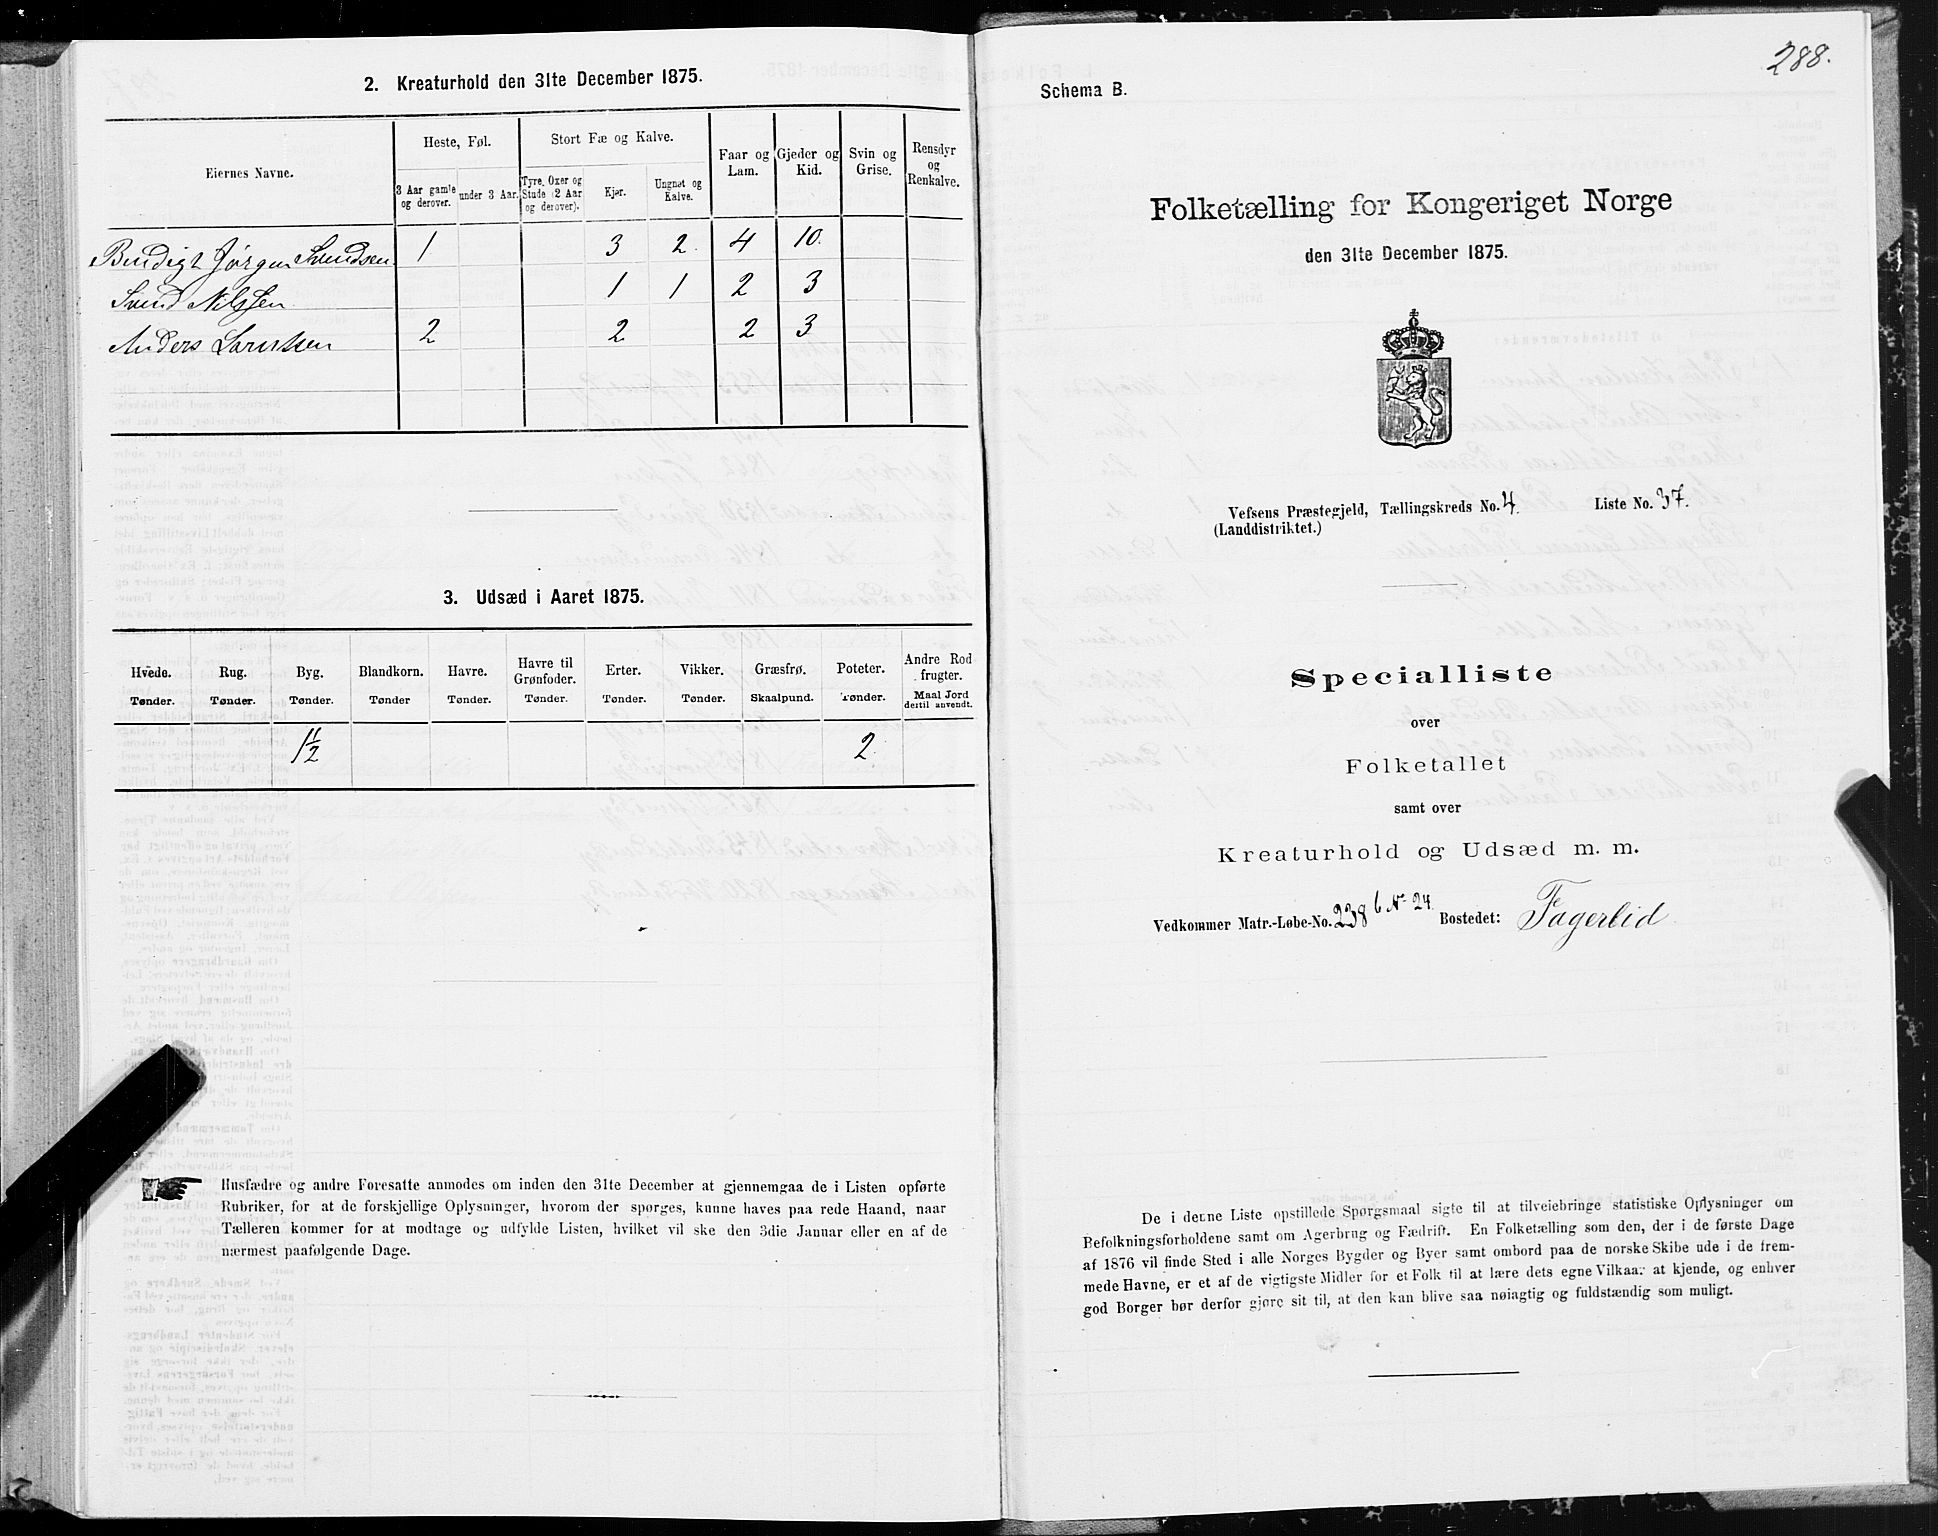 2. Kreaturhold den 31te December 1875.
Eiernes Navne.
Heste, Føl.
Stort Fæ og Kalve.
Faar og Lam.
Gjeder og Kid.
Svin og Grise.
Rensdyr og Renkalve.
3 Aar gamle og derover.
under 3 Aar.
Tyre, Oxer og Stude (2 Aar og derover).
Kjør.
Ungnøt og Kalve.
Bendigt Jørgen Svendsen 1 3 2 4 10.
Svend Nilssen 1 1 2 3
Anders Larntsen 2 2 2 3
3. Udsæd i Aaret 1875.
Hvede. Rug. Byg. Blandkorn. Havre. Havre til Grønfoder. Erter. Vikker. Græsfrø. Poteter. Andre Rodfrugter.
Tønder. Tønder. Tønder. Tønder Tønder. Tønder. Tønder. Tønder. Skaalpund. Tønder. Maal Jord dertil anvendt.
1½ 2
Husfædre og andre Foresatte anmodes om inden den 31te December at gjennemgaa de i Listen opførte
Rubriker, for at de forskjellige Oplysninger, hvorom der spørges, kunne haves paa rede Haand, naar
Tælleren kommer for at modtage og udfylde Listen, hvilket vil ske den 3die Januar eller en af de
nærmest paafølgende Dage.
288.
Schema B.
Folketælling for Kongeriget Norge
den 31te December 1875.
Vefsens Præstegjeld, Tællingskreds No. 4. Liste No. 37.
(Landdistriktet.)
Specialliste
over
Folketallet
samt over
Kreaturhold og Udsæd m. m.
Vedkommer Matr.-Løbe-No. 238 b No 24. Bostedet: Fagerlid
De i denne Liste opstillede Spørgsmaal sigte til at tilveiebringe statistiske Oplysninger om
Befolkningsforholdene samt om Agerbrug og Fædrift. En Folketælling som den, der i de første Dage
af 1876 vil finde Sted i alle Norges Bygder og Byer samt ombord paa de norske Skibe ude i de frem-
mede Havne, er et af de vigtigste Midler for et Folk til at lære dets egne Vilkaar at kjende, og enhver
god Borger bør derfor gjøre sit til, at den kan blive saa nøiagtig og fuldstændig som muligt.